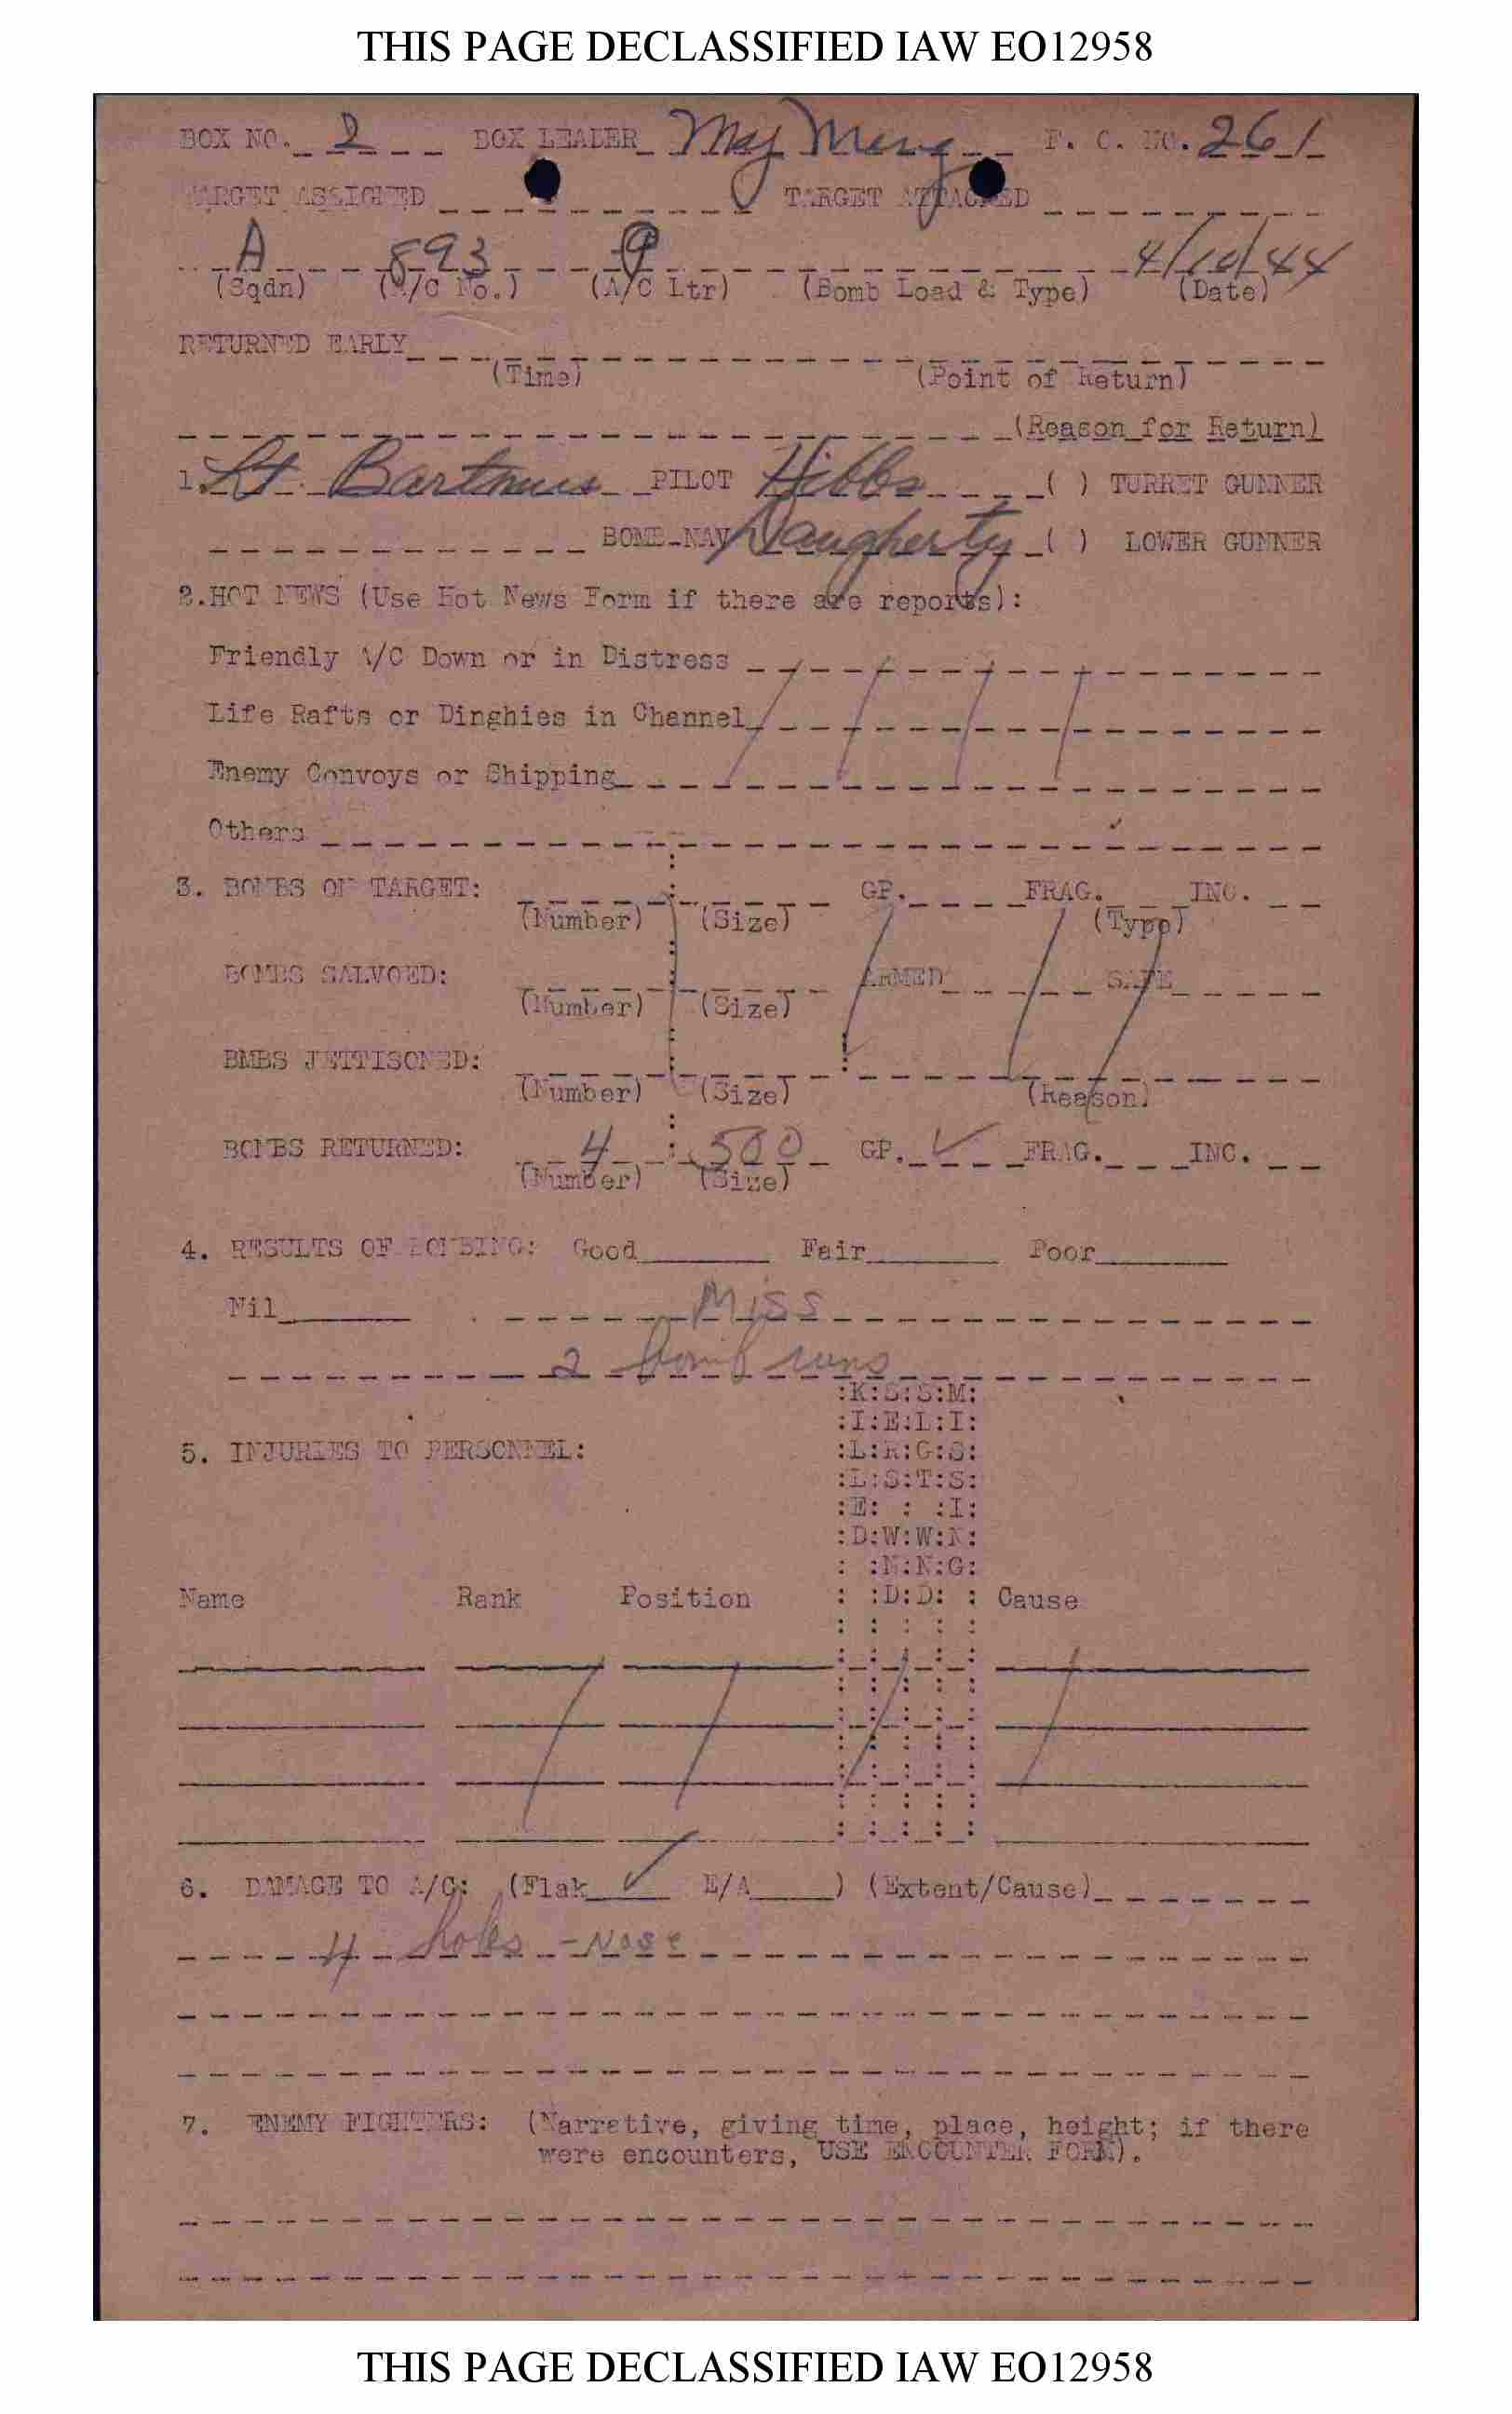 THIS PAGE DECLASSIFIED IAW EO12958
BOX NO. 2 BOX LEADER Maj Meng F. C. NO. 261
TARGET ASSIGNED TARGET ATTACKED
A 893 P 4/10/44
(Sqdn) (A/C No.) (A/C Ltr) (Bomb Load & Type) (Date)
RETURNED EARLY
(Time) (Point of Return)
(Reason for Return)
1. Lt. Bartmus PILOT Hibbs ( ) TURRET GUNNER
BOMB-NAV Daugherty ( ) LOWER GUNNER
2.HOT NEWS (Use Hot News Form if there are reports):
Friendly A/C Down or in Distress
Life Rafts or Dinghies in Channel
Enemy Convoys or Shipping
Others
3. BOMBS ON TARGET: GP. FRAG. INC.
(Number) (Size) (Type)
BOMBS SALVOED: ARMED SAFE
(Number) (Size)
BMBS JETTISONED:
(Number) (Size) (Reason)
BOMBS RETURNED: 4 500 GP. ✓ FRAG. INC.
(Number) (Size)
4. RESULTS OF BOMBING: Good Fair Poor
Nil Miss
2 bomb runs
:K:S:S:M:
:I:E:L:I:
5. INJURIES TO PERSONNEL: :L:R:G:S:
:L:S:T:S:
:E: : :I:
:D:W:W:N:
: :N:N:G:
Name Rank Position : :D:D: : Cause
6. DAMAGE TO A/C: (Flak ✓ E/A ) (Extent/Cause)
4 holes - Nose
7. ENEMY FIGHTERS: (Narrative, giving time, place, height; if there
were encounters, USE ENCOUNTER FORM).
THIS PAGE DECLASSIFIED IAW EO12958